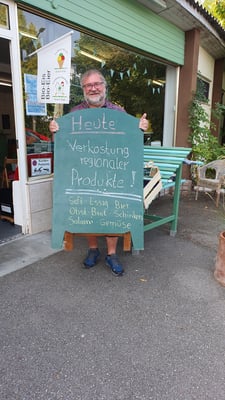 Heute
Verkostung
regionaler
Produkte!
Saft Essig Bier
Obst Brot Schinken
Salami Gemüse
Bio-Ein
Bio-Eier